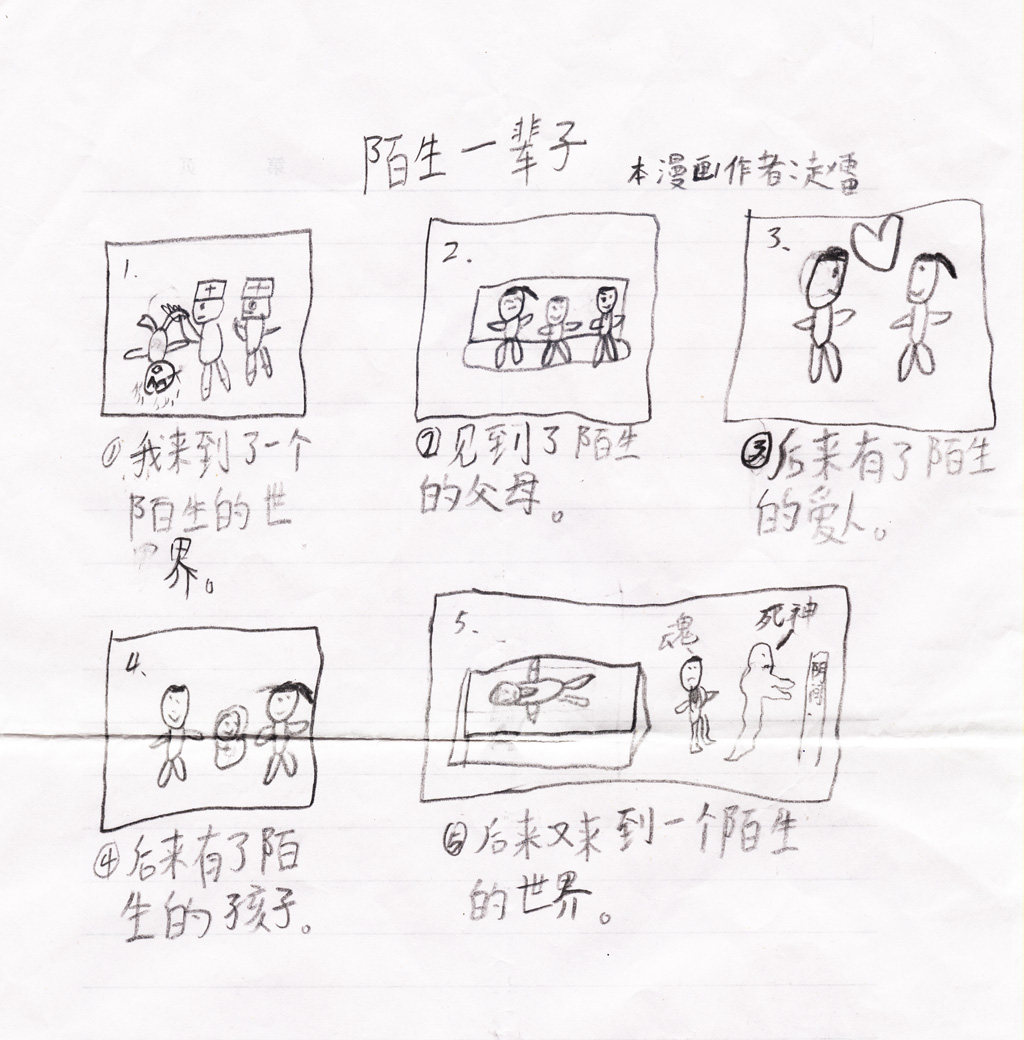 陌生一辈子
本漫画作者:赵雷
1.
2.
3、
①我来到了一个
陌生的世
界。
②见到了陌生
的父母。
③后来有了陌生
的爱人。
4、
5、
魂
死神
阴间
④后来有了陌
生的孩子。
⑤后来又来到一个陌生
的世界。